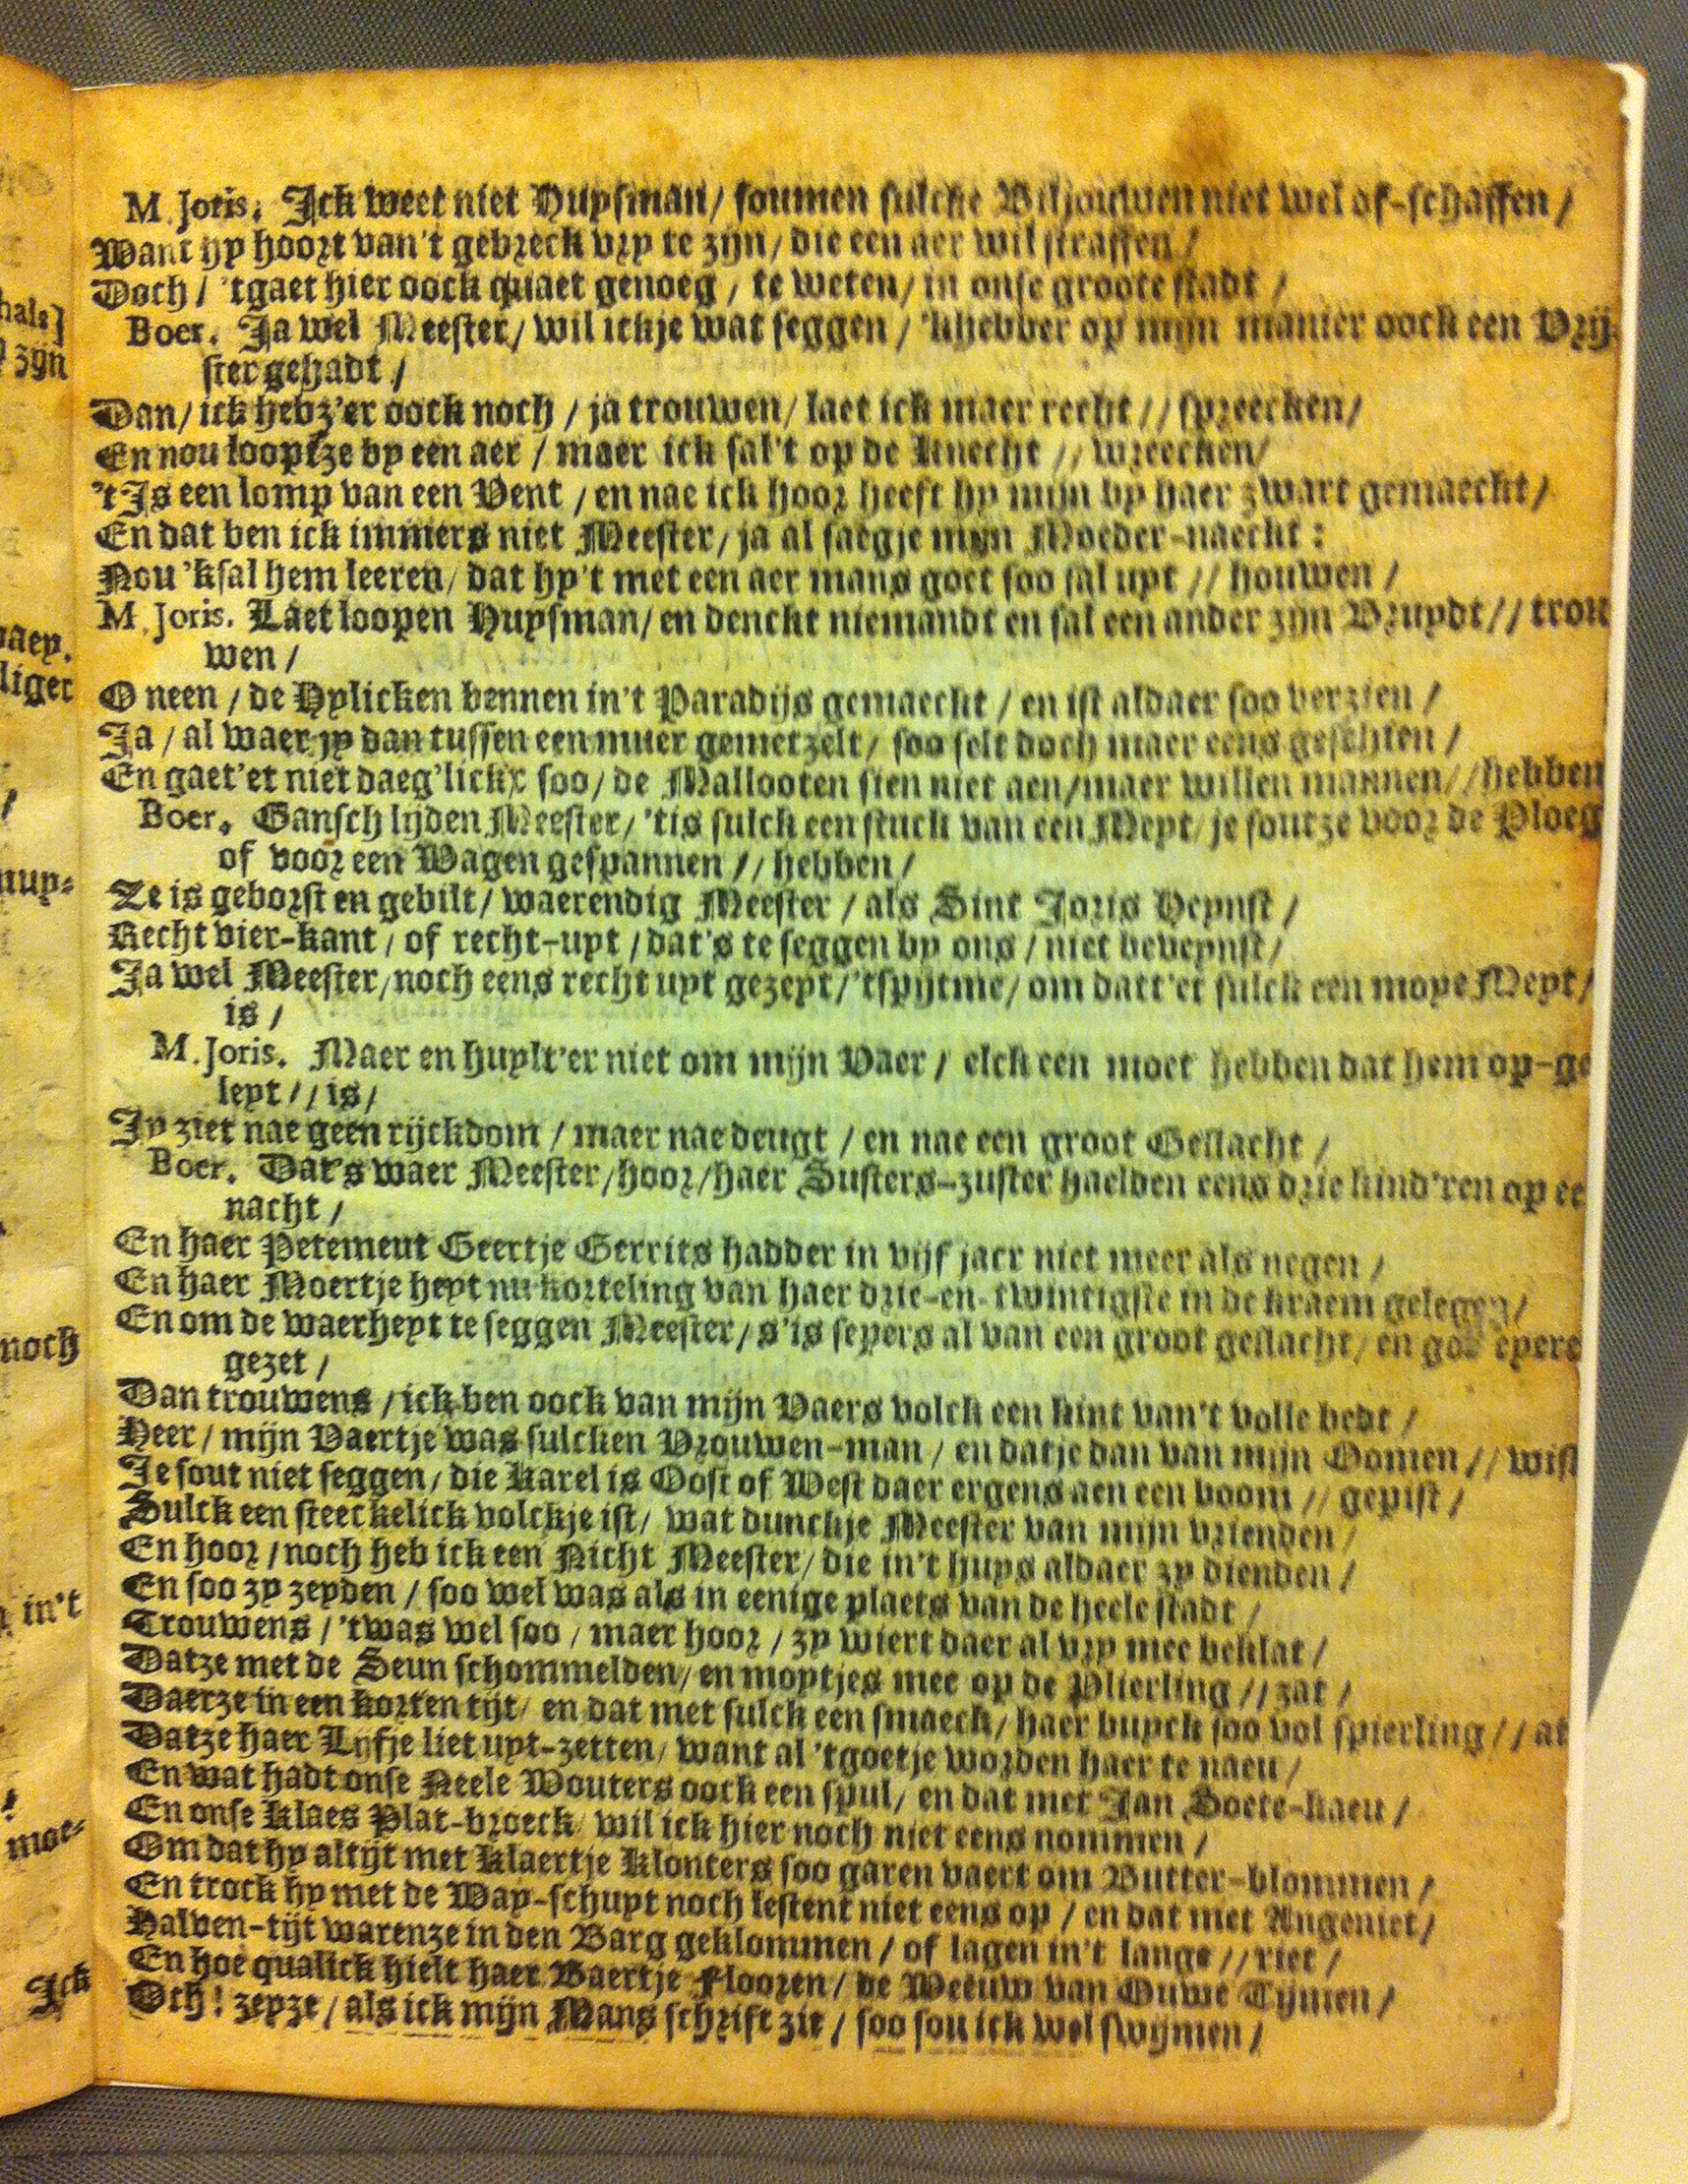 M. Joris. Ick weet niet Huysman / soumen sulcke Biljouwen niet wel of-schaffen /
Want hy hoort van't gebreck vry te zijn / die een aer wil straffen /
Doch / 'tgaet hier oock quaet genoeg / te weten / in onse groote stadt /
Boer. Ja wel Meester / wil ickje wat seggen / 'khebber op mijn manier oock een Vrij-
ster gehadt /
Dan / ick hebz'er oock noch / ja trouwen / laet ick maer recht // spreecken /
En nou looptze by een aer / maer ick sal't op de knecht // wreecken /
't Is een lomp van een Vent / en nae ick hoor heeft hy mijn by haer zwart gemaeckt /
En dat ben ick immers niet Meester / ja al saegje mijn Moeder-naeckt :
Nou 'ksal hem leeren / dat hy't met een aer mans goet soo sal uyt // houwen /
M. Joris. Laet loopen Huysman / en denckt niemandt en sal een ander zijn Bruydt // trou
wen /
O neen / de Hylicken bennen in't Paradijs gemaeckt / en ist aldaer soo verzien /
Ja / al waer jy dan tussen een muer gemetzelt / soo selt doch maer eens geschien /
En gaet'et niet daeg'lickx soo / de Mallooten sien niet aen / maer willen mannen // hebben
Boer. Gansch lijden Meester / 'tis sulck een stuck van een Meyt / je soutze voor de Ploeg
of voor een Wagen gespannen // hebben /
Ze is geborst en gebilt / waerendig Meester / als Sint Joris Heynst /
Recht vier-kant / of recht-uyt / dat's te seggen by ons / niet beveynst /
Ja wel Meester / noch eens recht uyt gezeyt / 'tspijtme / om datt'et sulck een moye Meyt /
is /
M. Joris. Maer en huylt'er niet om mijn Vaer / elck een moet hebben dat hem op-ge
leyt // is /
Jy ziet nae geen rijckdom / maer nae deugt / en nae een groot Geslacht /
Boer. Dat's waer Meester / hoor / haer Susters-zuster haelden eens drie kind'ren op ee
nacht /
En haer Petemeut Geertje Gerrits hadder in vijf jaer niet meer als negen /
En haer Moertje heyt nu korteling van haer drie-en-twintigste in de kraem gelegen /
En om de waerheyt te seggen Meester / s'is seyers al van een groot geslacht / en goe eyere
gezet /
Dan trouwens / ick ben oock van mijn Vaers volck een kint van't volle bedt /
Heer / mijn Vaertje was sulcken Vrouwen-man / en datje dan van mijn Oomen // wist
Je sout niet seggen / die Karel is Oost of West daer ergens aen een boom // gepist /
Sulck een steeckelick volckje ist / wat dunckje Meester van mijn vrienden /
En hoor / noch heb ick een Nicht Meester / die in't huys aldaer zy dienden /
En soo zy zeyden / soo wel was als in eenige plaets van de heele stadt /
Trouwens / 'twas wel soo / maer hoor / zy wiert daer al vry mee beklat /
Datze met de Seun schommelden / en moytjes mee op de Plierling // zat /
Daerze in een korten tijt / en dat met sulck een smaeck / haer buyck soo vol spierling // at
Datze haer Lijfje liet uyt-zetten / want al 'tgoetje worden haer te naeu /
En wat hadt onse Neele Wouters oock een spul / en dat met Jan Soete-kaeu /
En onse Klaes Plat-broeck wil ick hier noch niet eens nommen /
Om dat hy altijt met Klaertje Klonters soo garen vaert om Butter-blommen /
En trock hy met de Way-schuyt noch lestent niet eens op / en dat met Angeniet /
Halven-tijt warenze in den Barg geklommen / of lagen in't lange // riet /
En hoe qualick hielt haer Baertje Floozen / de Weeuw van Ouwe Tijmen /
Och ! zeyze / als ick mijn Mans schrift zie / soo sou ick wel swijmen /